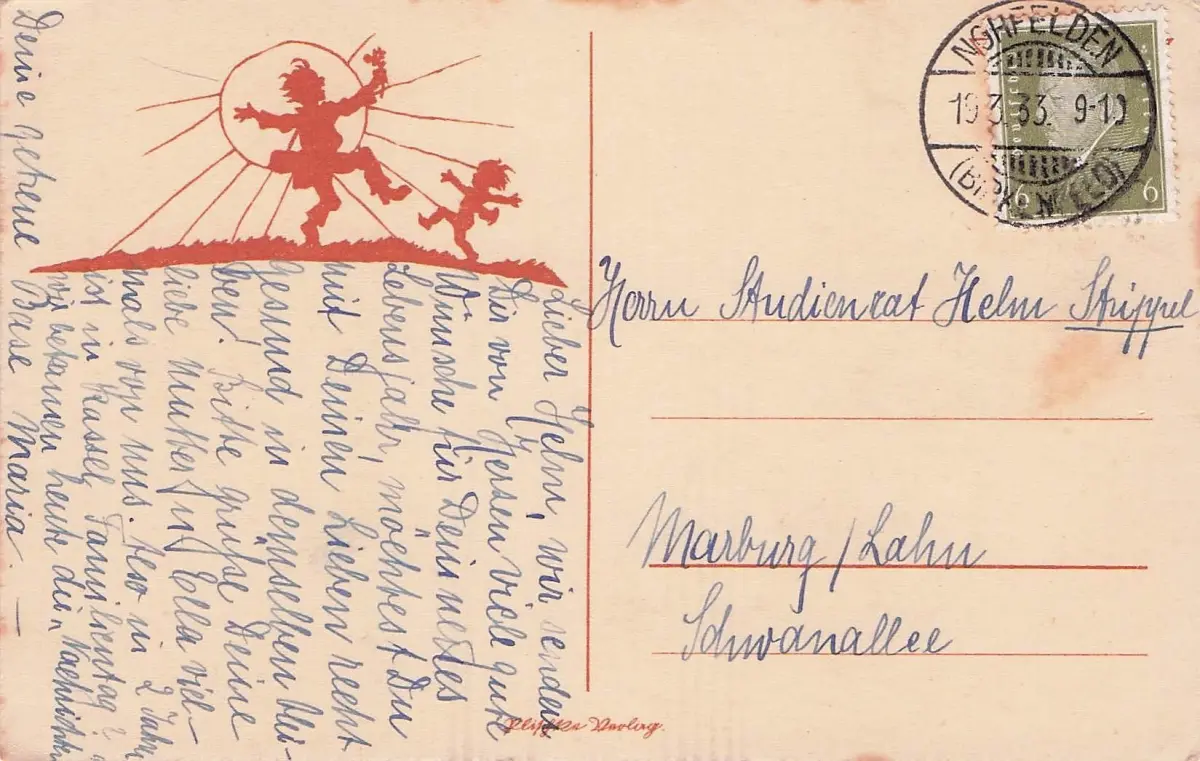 Lieber Helm, wir senden
Dir von Herzen viele gute
Wünsche für Dein neues
Lebensjahr, möchtest Du
mit Deinen Lieben recht
gesund in demselben blei-
ben! Bitte grüße Deine
liebe Mutter u Ella viel-
mals von uns. Also in 2 Jahr
ist in Kassel Familientag?
wir bekamen heute die Nachricht
Deine getreue Base Maria. —
NOHFELDEN
19.3.33. 9-10
(BIRKENFELD)
6 6
Herrn Studienrat Helm Strippel
Marburg/Lahn
Schwanallee
Verlag.